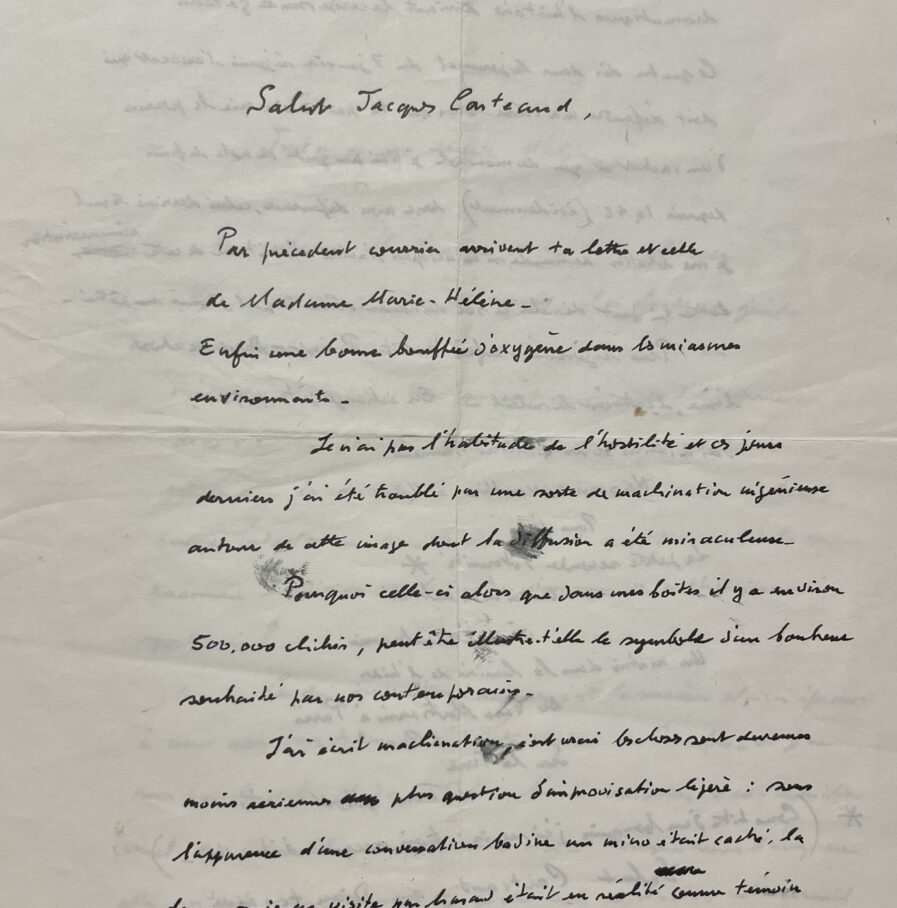 Salut Jacques Carteaud,
Par précédent courrier arrivent ta lettre et celle
de Madame Marie-Hélène -
Enfin une bonne bouffée d'oxygène dans les miasmes
environnants -
Je n'ai pas l'habitude de l'hostilité et ces jours
derniers j'ai été troublé par une sorte de machination ingénieuse
autour de cette image dont la diffusion a été miraculeuse -
Pourquoi celle-ci alors que dans mes boîtes il y a environ
500.000 clichés, peut être illustre-t'elle le symbole d'un bonheur
souhaité par nos contemporains -
J'ai écrit machination, c'est vrai les choses sont devenues
moins aériennes plus question d'improvisation légère : sous
l'apparence d'une conversation badine un micro était caché, la
visite par hasard était en réalité comme témoin